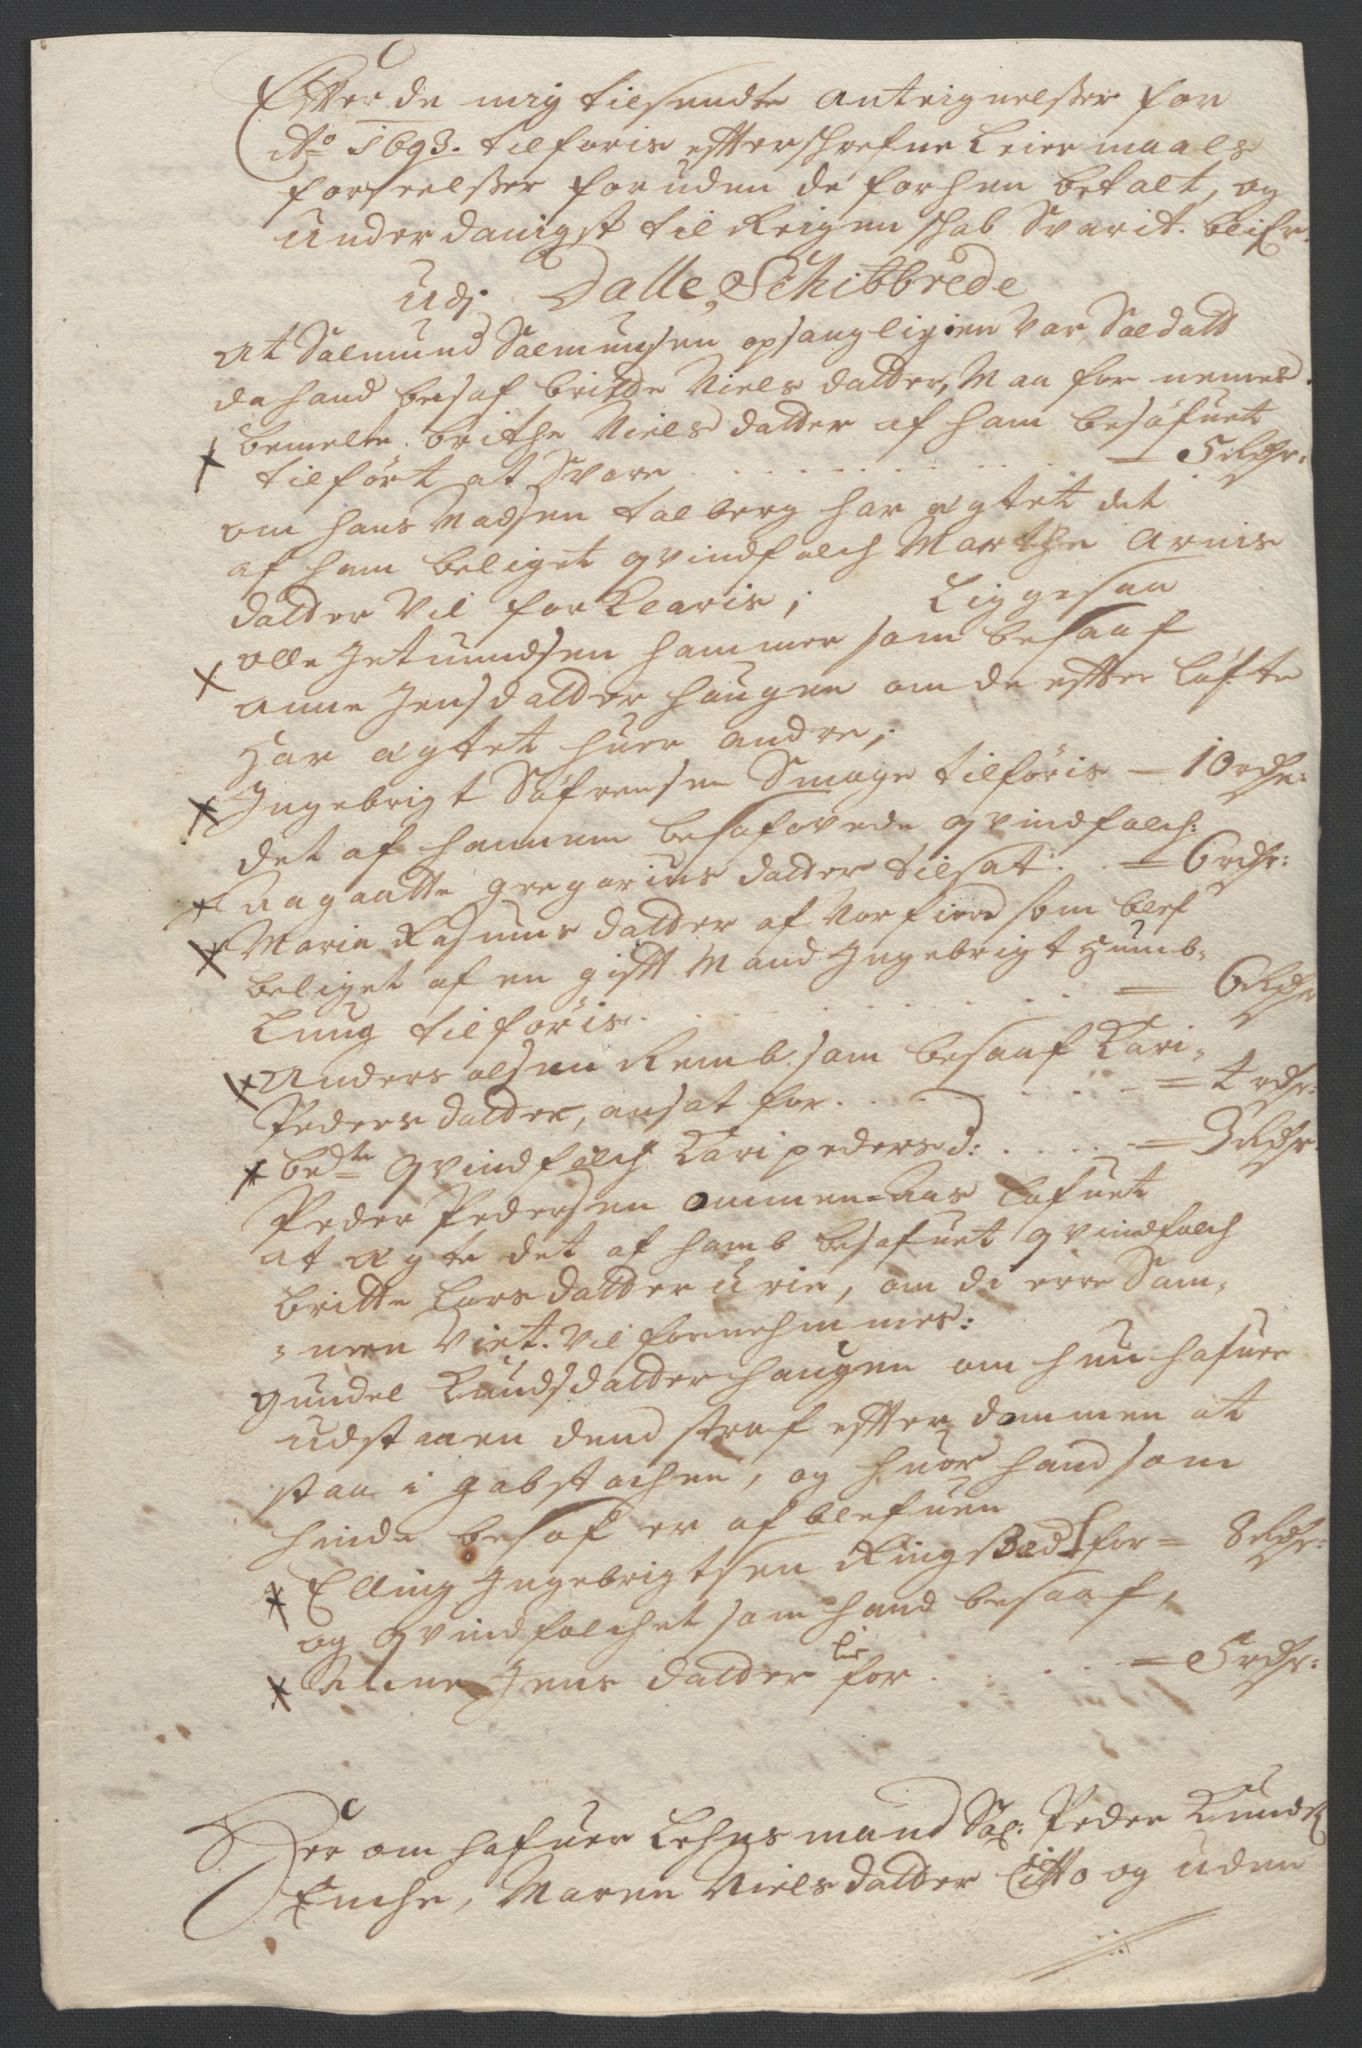 Effter de mig tilsendte Anteignelsser for
Ao 1693. tilføris effterschrefne Leiermaals
forseelsser foruden de forhen betalt, og
underdanigst til Reigenschab Svarit. blifr.
Udj Dalle Schibbrede
At Salmund Salmunsen opsangligien var Saldatt
da hand besaf britte Niels datter, Maa fornemes.
bemelte. brithe Niels datter af ham besøfuet
tilført at Svare . . . . . . . = 5 Rdr:
om hans Madsen talberg har ægtet det
af ham beliget qvindfolch Marthe Arnis
datter vil forklaris; Liggesaa
olle Jetmundsen hammer som besaaf
Anne Jensdatter haugen om de effter Løfte
har ægtet huer andre;
Ingebrigt Søfrensen Smage tilføris — 10 rdr:
det af hannem besafovede qvindfolch:
Aagaatte gregorius datter tilsat. . = 6 rdr:
Maria Rasmus datter af Norfiord som blef
beliget af en gift Mand Ingebrigt Humb-
Lung tilføris. . . . . . . = 6 Rdr
Anders olsen Remb. som besaaf Kari-
Peders datter, ansat for. . . . . . = 4 rdr:
bedte qvindfolch Kari peders d: . . . . = 3 Rdr.
Peder Pedersen Ommen-Aas lofuet
at ægte det af hamb besøfuet qvindfolch
britte Larsdatter urie, om di erre Sam-
-men Viet. vil fornehmmes:
gundel Knudsdatter haugen om hun hafuer
udstaaen dend straf effter dommen at
staa i gabstochen, og huor hand som
hinde besof er afblefuen
Elling Ingebrigtsen Ringstad for = 8 Rdr:
og qvindfolchet som hand besaaf,
Anne Jens datter lie for . . . . = 5 rdr:
Her om hafuer Lehnsmand Sal: Peder Knuds
Enche, Maren Niels datter Citto og uden